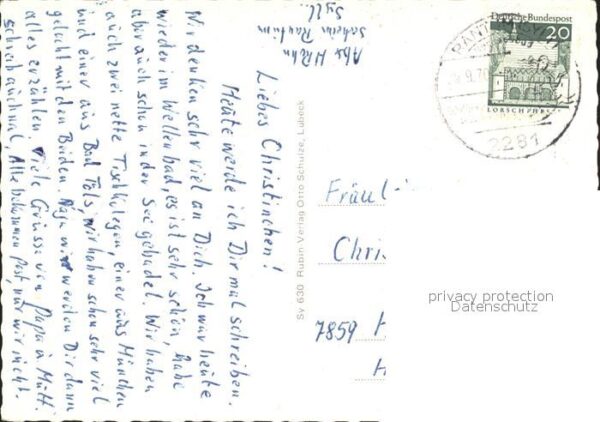 Abs. H. Rehn
Rantum
Sylt.
Liebes Christinchen!
Heute werde ich Dir mal schreiben.
Wir denken sehr viel an Dich. Ich war heute
wieder im Wellenbad, es ist sehr schön, habe
aber auch schon in der See gebadet. Wir haben
auch zwei nette Tischkolegen, einer aus München
und einer aus Bad Tölz, wir haben schon sehr viel
gelacht mit den Beiden. Naja wir werden Dir dann
alles erzählen. Viele Grüsse von Papa u Mutti.
schreib auch mal. Alle bekommen Post, nur wir nicht.
Sy 630 Rubin Verlag Otto Schulze, Lübeck
Deutsche Bundespost
20
LORSCH/HESSEN
RANTUM
2281
Fräul
Chris
7859 H
H
privacy protection
Datenschutz